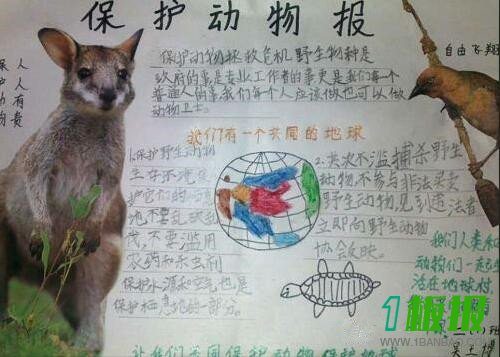 保护动物报
人人有责
保护动物
自由飞翔
保护动物拯救危机野生物种是
政府的事是专业工作者的事更是我们每一个
普通人的事我们每个人应该做也可以做
动物卫士。
我们有一个共同的地球
1.保护野生动物
生存环境
护它们的
地不要乱砍
伐,不要滥用
农药和杀虫剂
保护水源和空气也是
保护栖息地的一部分。
2.其次不滥捕杀野生
动物,不参与非法买卖
野生动物见到违法者
立即向野生动物
协会反映。
我们人类和
动物们一起生
活在地球村
让我们共同保护动物保护地球
1板报
WWW.1BANBAO.COM